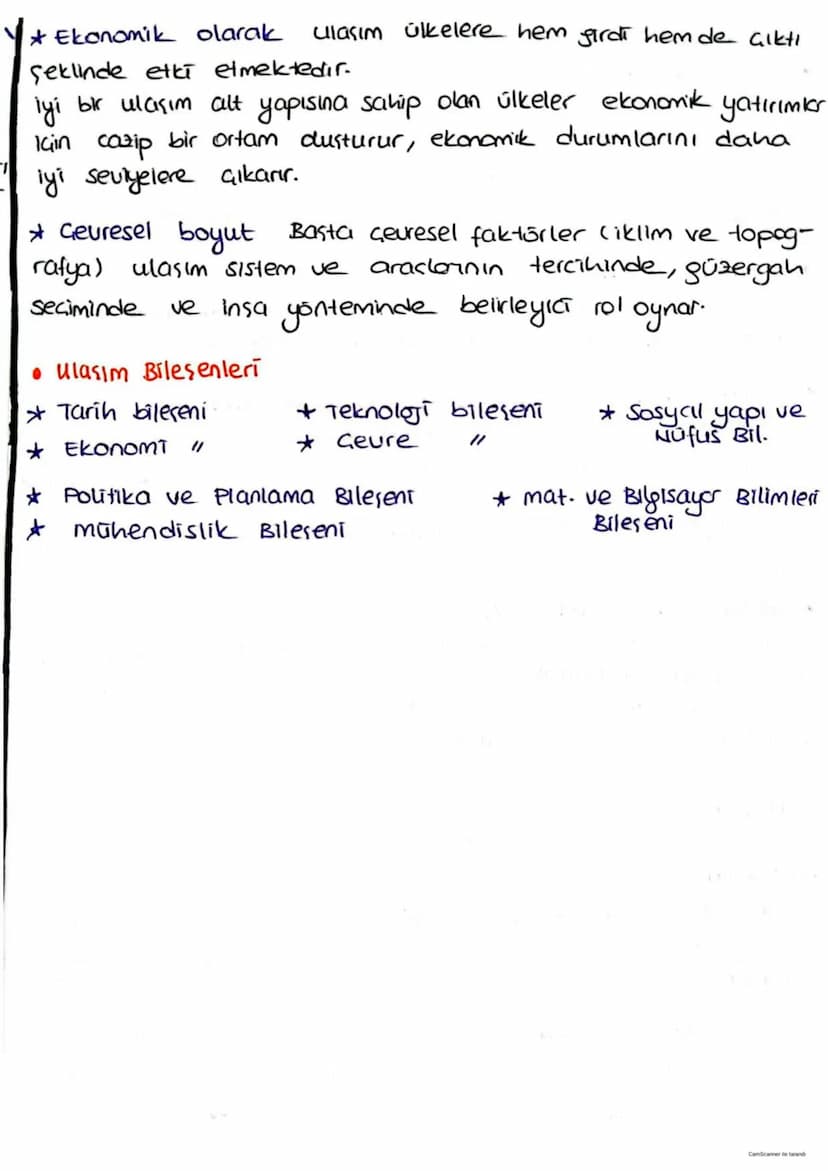 * Ekonomik olarak ulaşım ülkelere hem girdi hem de çıktı
şeklinde etki etmektedir.
iyi bir ulaşım alt yapısına sahip olan ülkeler ekonomik yatırımlar
için cazip bir ortam oluşturur, ekonomik durumlarını daha
iyi seviyelere çıkarır.
* Çevresel boyut Başta çevresel faktörler (iklim ve topoğ-
rafya) ulaşım sistem ve araçlarının tercihinde, güzergah
seçiminde ve inşa yönteminde belirleyici rol oynar.
• Ulaşım Bileşenleri
* Tarih bileşeni * Teknoloji bileşeni * Sosyal yapı ve
Nüfus Bil.
* Ekonomi " * Çevre "
* Politika ve Planlama Bileşeni * mat. ve Bilgisayar Bilimleri
Bileşeni
* mühendislik Bileşeni
CamScanner ile tarandı